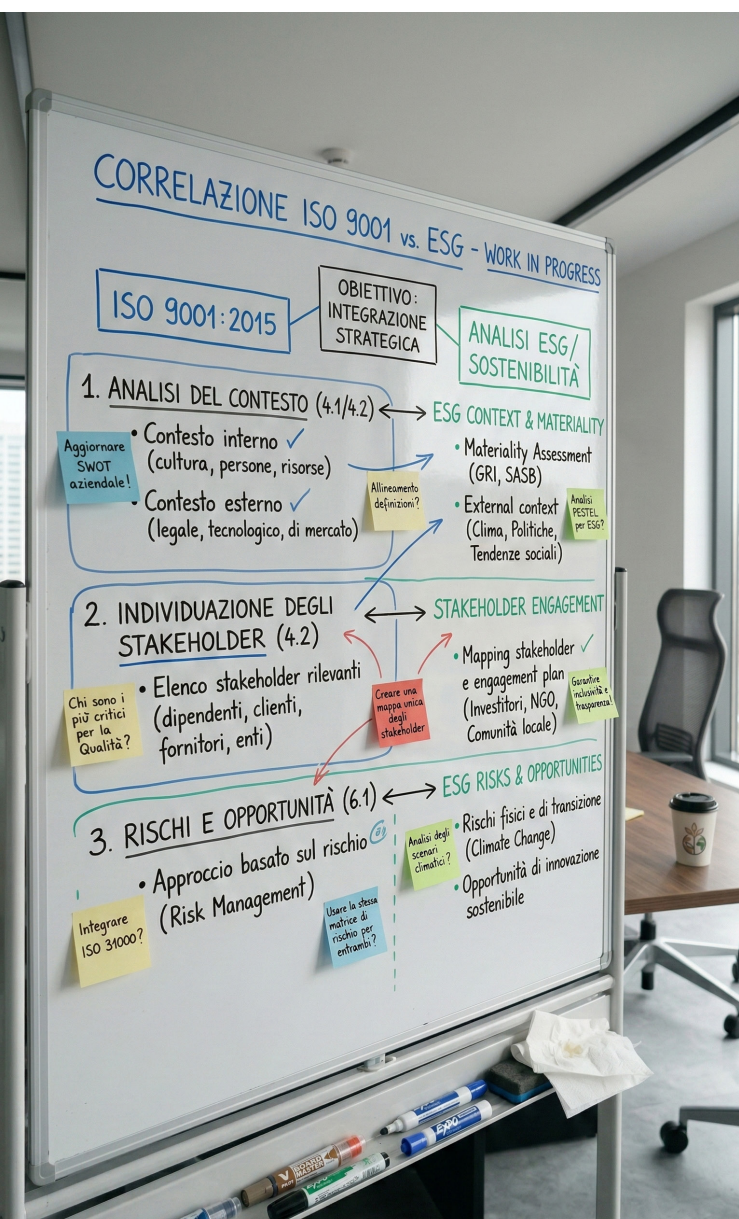 CORRELAZIONE ISO 9001 vs. ESG - WORK IN PROGRESS
ISO 9001:2015
OBIETTIVO:
INTEGRAZIONE
STRATEGICA
ANALISI ESG/
SOSTENIBILITÀ
1. ANALISI DEL CONTESTO (4.1/4.2)
Aggiornare
SWOT
aziendale!
• Contesto interno ✓
(cultura, persone, risorse)
• Contesto esterno ✓
(legale, tecnologico, di mercato)
Allineamento
definizioni?
ESG CONTEXT & MATERIALITY
• Materiality Assessment
(GRI, SASB)
• External context
(Clima, Politiche,
Tendenze sociali)
Analisi
PESTEL
per ESG?
2. INDIVIDUAZIONE DEGLI
STAKEHOLDER (4.2)
Chi sono i
più critici
per la
Qualità?
• Elenco stakeholder rilevanti
(dipendenti, clienti,
fornitori, enti)
Creare una
mappa unica
degli
stakeholder
STAKEHOLDER ENGAGEMENT
• Mapping stakeholder ✓
e engagement plan
(Investitori, NGO,
Comunità locale)
Garantire
inclusività e
trasparenza!
3. RISCHI E OPPORTUNITÀ (6.1)
• Approccio basato sul rischio
(Risk Management)
Integrare
ISO 31000?
Usare la stessa
matrice di
rischio per
entrambi?
ESG RISKS & OPPORTUNITIES
Analisi degli
scenari
climatici?
• Rischi fisici e di transizione
(Climate Change)
• Opportunità di innovazione
sostenibile
EXPO
V BOARD
MASTER
PILOT